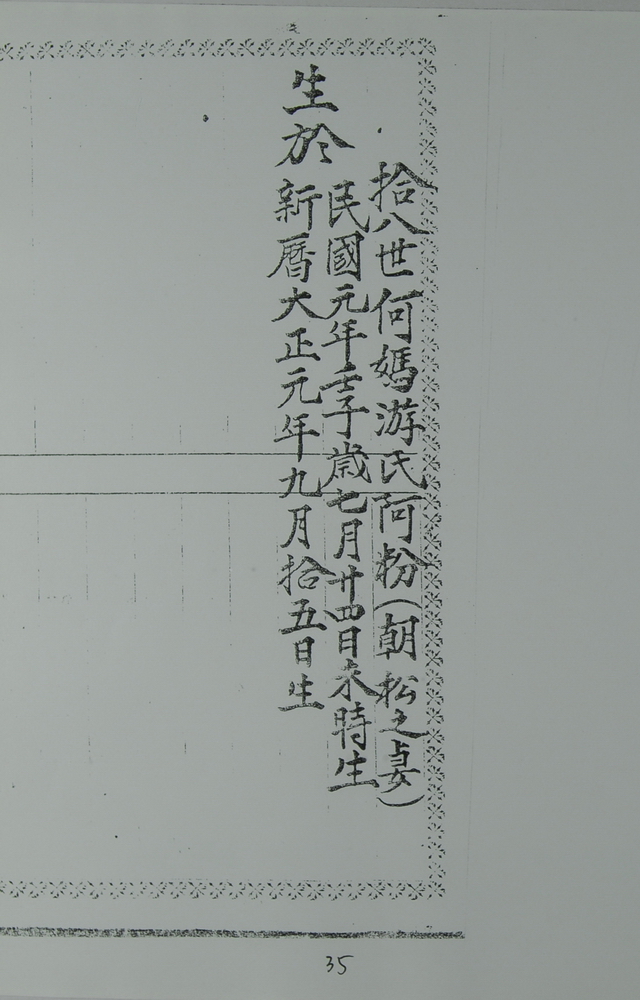 拾八世何媽游氏阿粉(朝松之妻)
生於
民國元年壬子歲七月廿四日未時生
新曆大正元年九月拾五日生
35